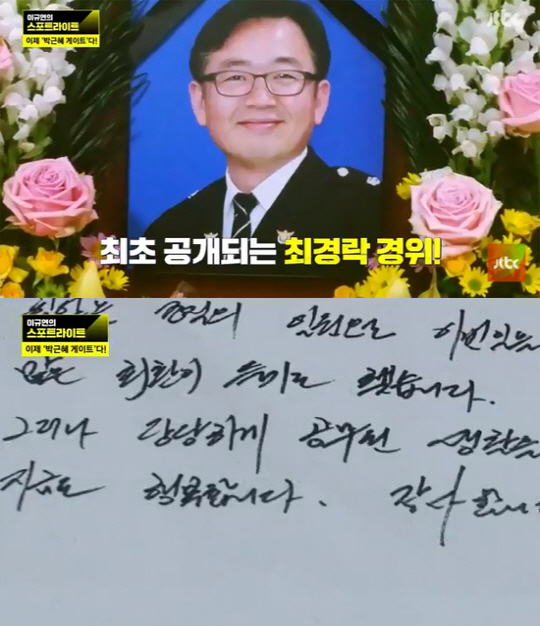 이규연의
스포트라이트
이제 '박근혜 게이트'다!
jtbc
최초 공개되는 최경락 경위!
jtbc
이규연의
스포트라이트
이제 '박근혜 게이트'다!
일원으로 이번
많은 회한이 했습니다.
그러나 당당하게 공무원
지금도 행복합니다. 감사합니다